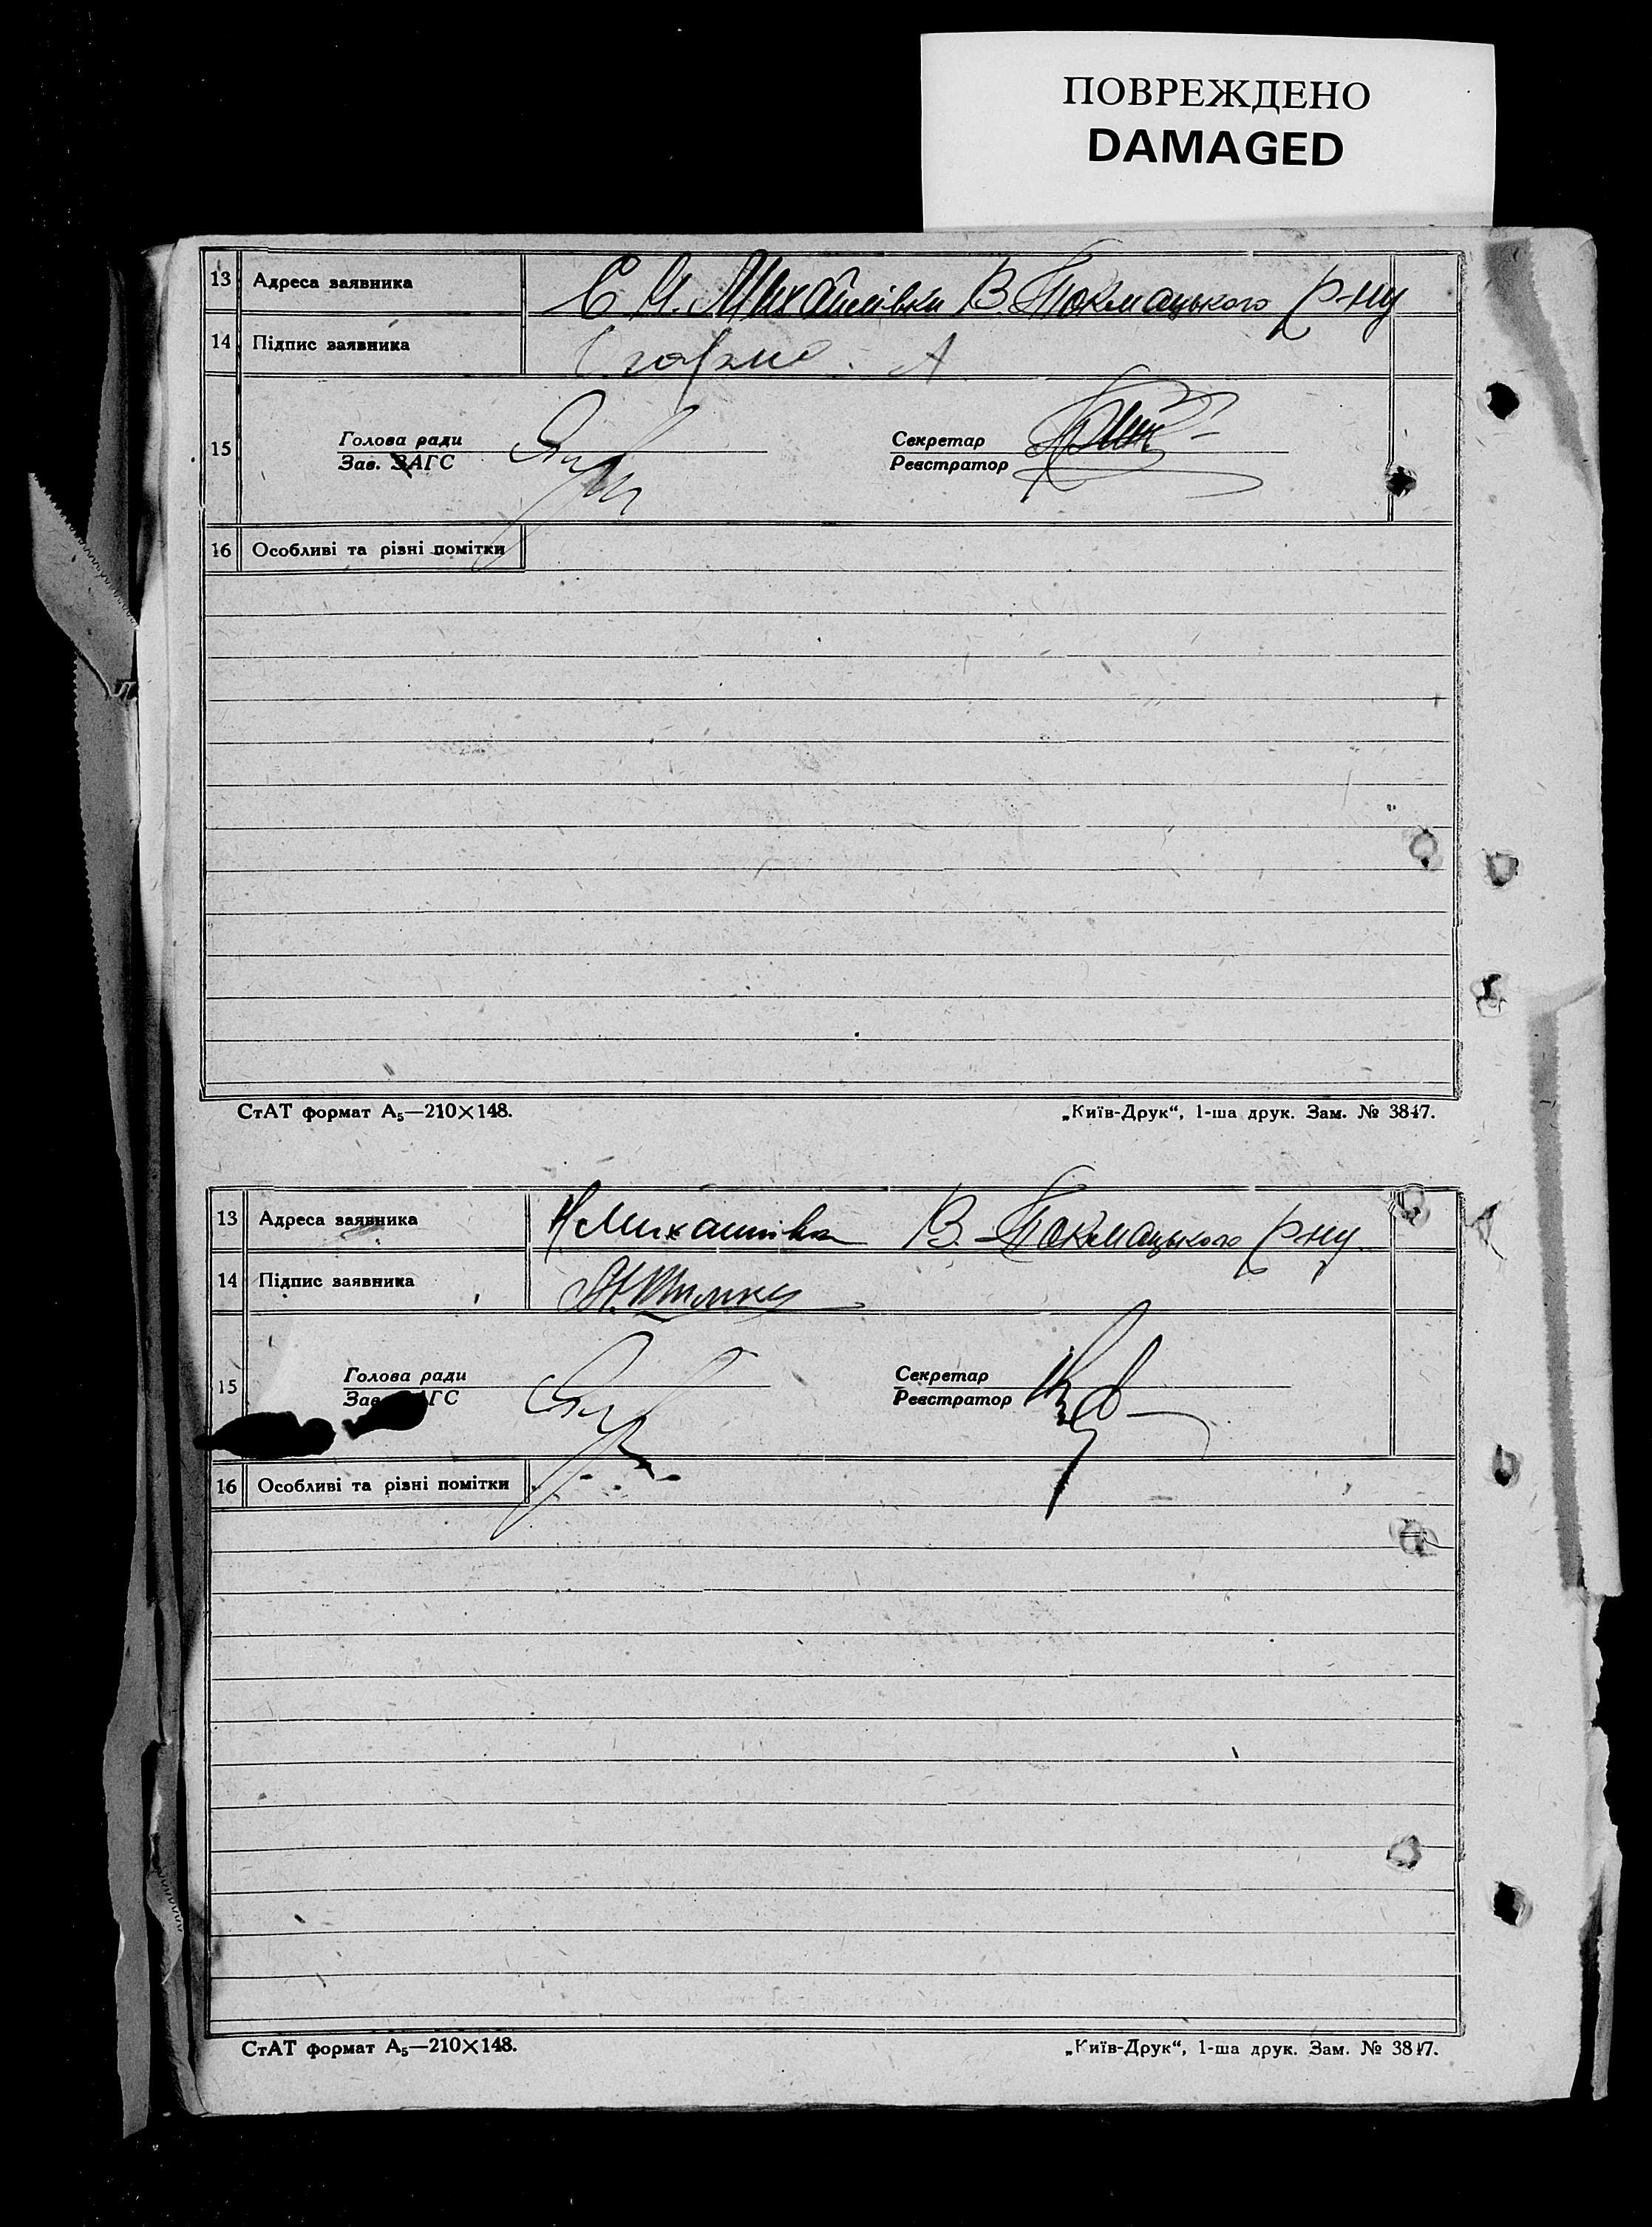 ПОВРЕЖДЕНО
DAMAGED
13 Адреса заявника С Н. Михайлівки В. Токмацького р-ну
14 Підпис заявника
15 Голова ради Секретар
Зав. ЗАГС Реєстратор
16 Особливі та різні помітки
СтАТ формат А₅—210×148. „Київ-Друк“, 1-ша друк. Зам. № 3847.
13 Адреса заявника Н Михайлівка В. Токмацького р-ну
14 Підпис заявника
15 Голова ради Секретар
Зав. ЗАГС Реєстратор
16 Особливі та різні помітки
СтАТ формат А₅—210×148. „Київ-Друк“, 1-ша друк. Зам. № 3847.